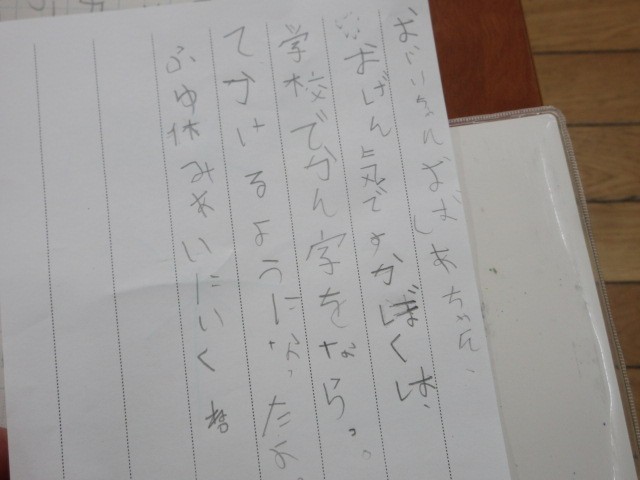 おじいちゃんおばあちゃん、
おげん気ですかぼくは、
学校でかん字をなら。
てかけるようになったよ。
ふゆ休みあいにいく 哲